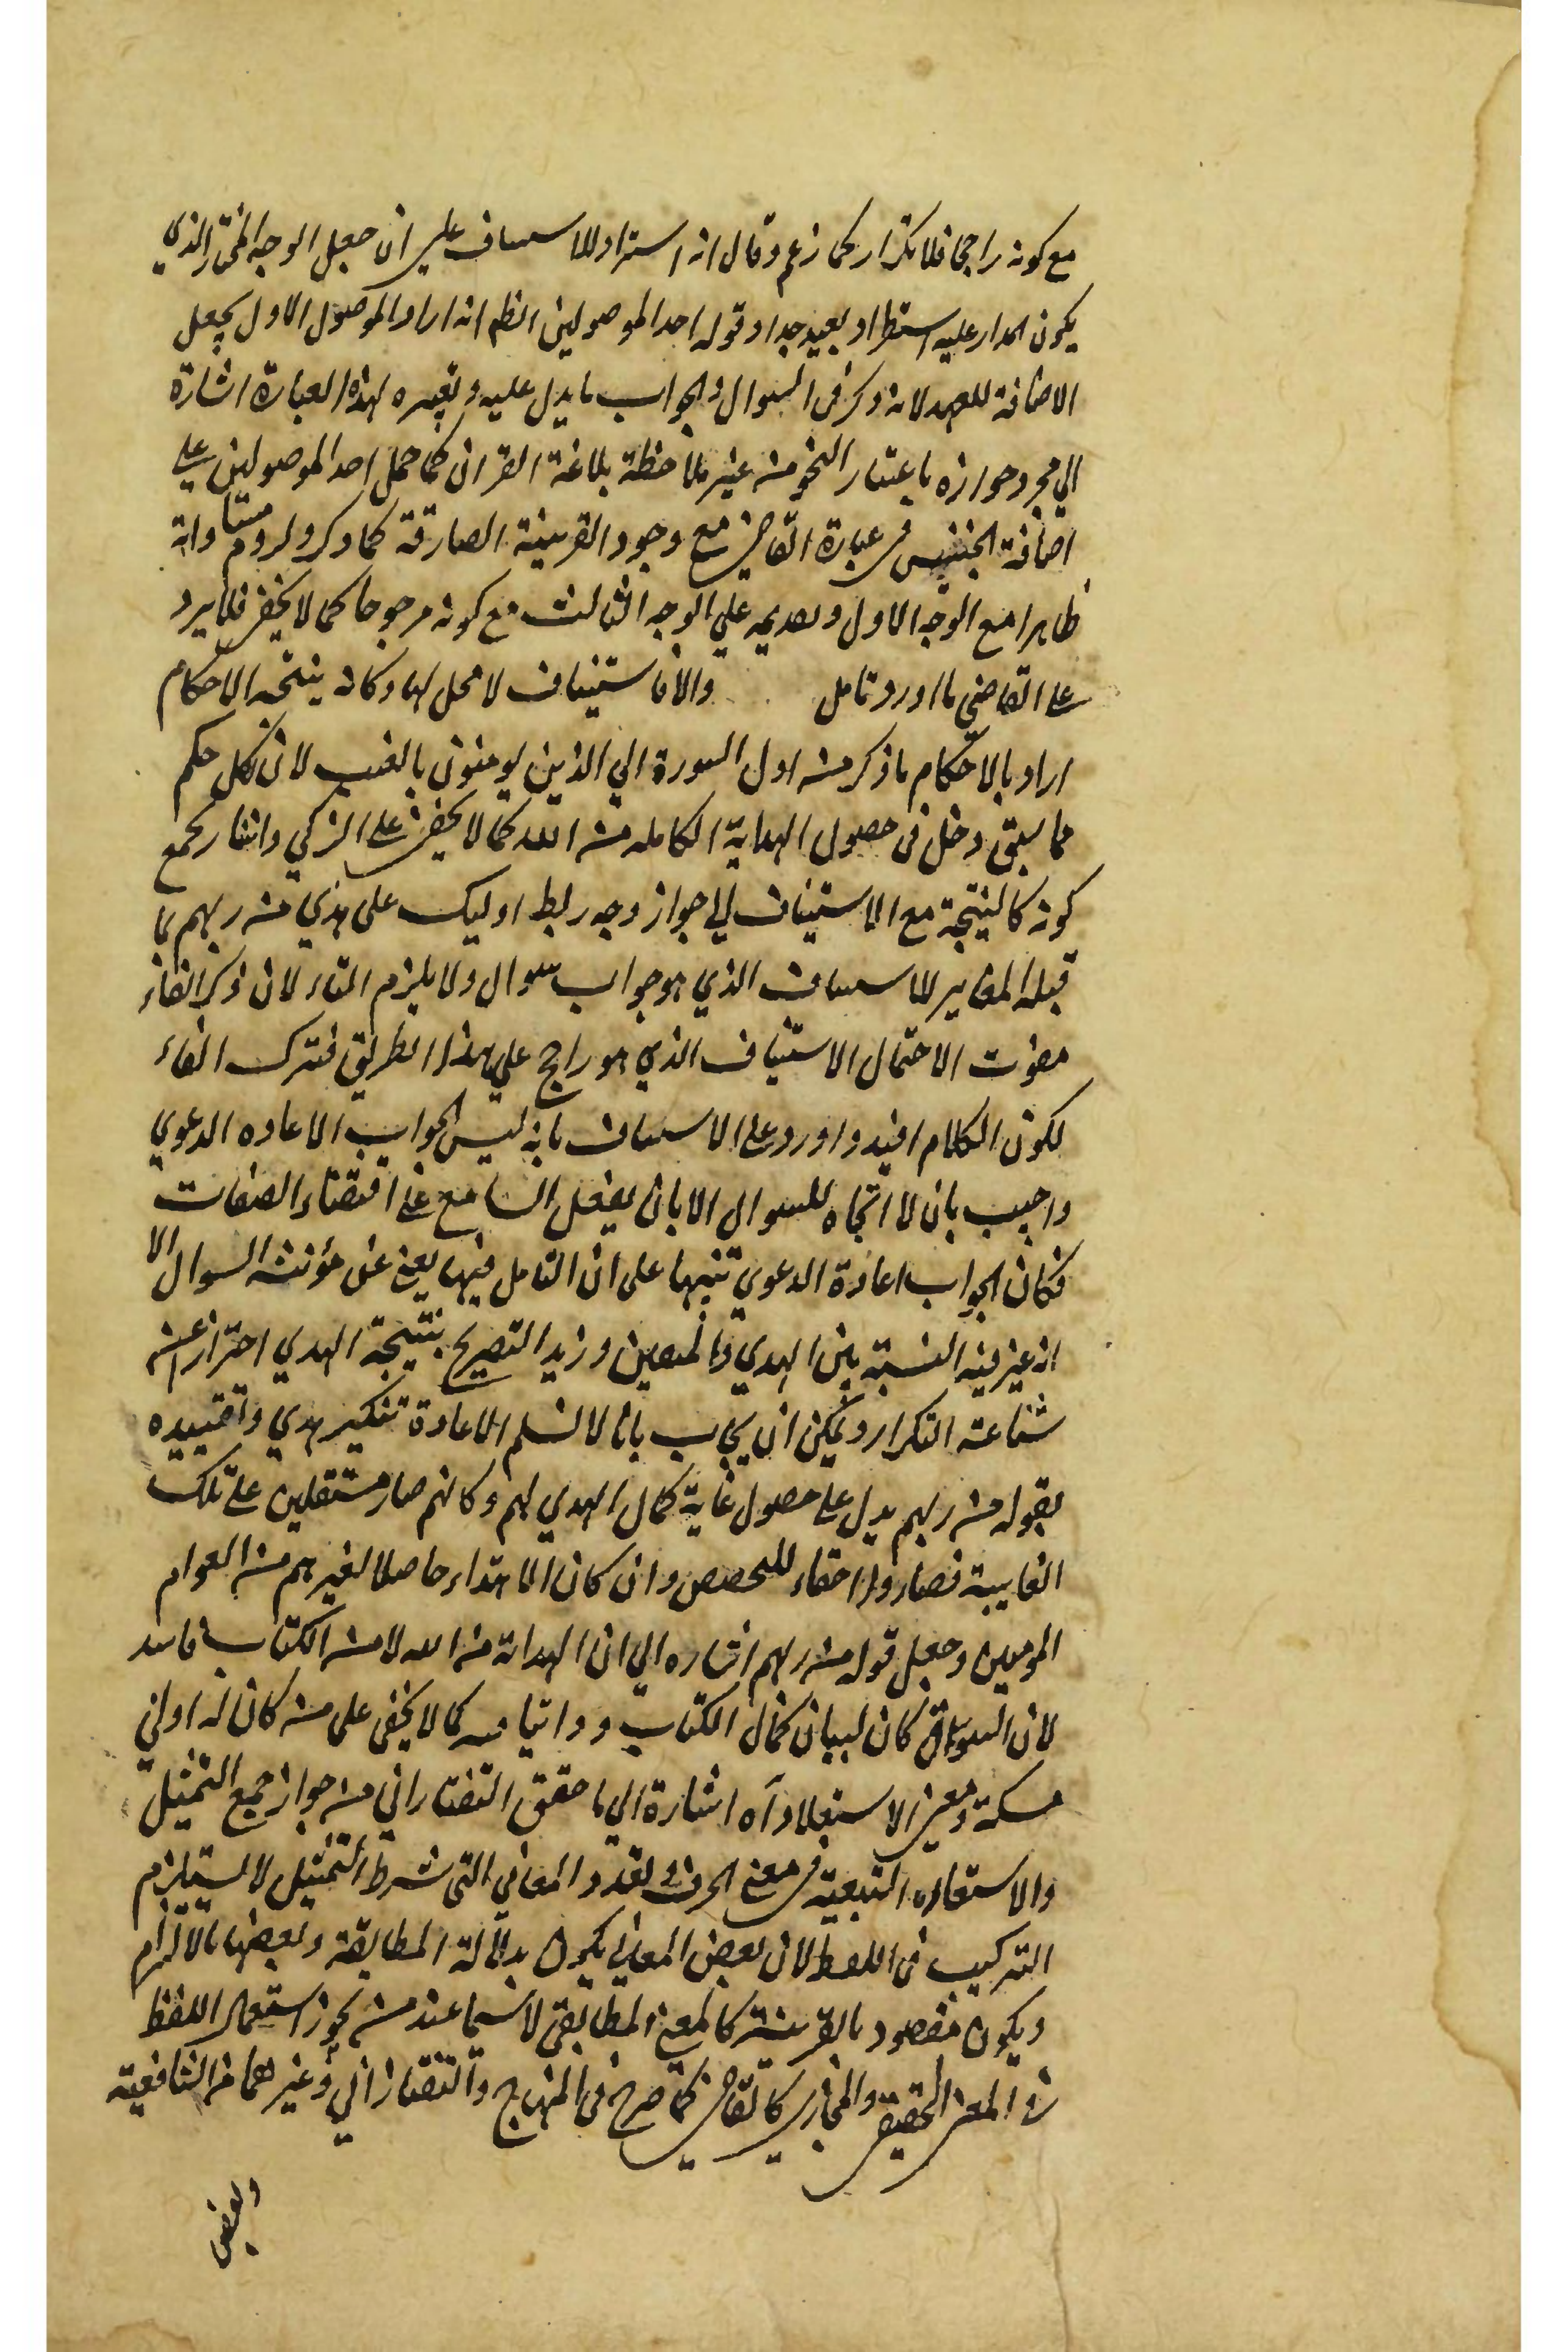 مع كونه راجحا فلا تكرار كما زعم وقال انه استيراد للاستيناف على ان جعل الوجه المختار الذي
يكون المدار عليه استطراد بعيد جدا وقوله احد الموصولين الظم انه اراد الموصول الاول بجعل
الاضافة للعهد لانه ذكر في السوال والجواب ما يدل عليه وتعبيره بهذه العبارة اشارة
الي مجرد جوازه باعتبار النحو منه غير ملاحظة بلاغة القران كما حمل احد الموصولين على
اضافة الجنس في عبارة القاضي مع وجود القرينة الصارفة كما ذكر ولزوم مساواته
ظاهرا مع الوجه الاول وتقديمه علي الوجه الثالث مع كونه مرجوحا كما لا يخفى فلا يرد
على القاضي ما اورد تامل والا فاستيناف لا محل لها وكانه نتيجة الاحكام
اراد بالاحكام ما ذكر من اول السورة الي الذين يومنون بالغيب لان لكل حكم
مما سبق دخل في حصول الهداية الكامله من الله كما لا يخفى على الزكي واشار بجمع
كونه كالنتيجة مع الاستيناف الي جواز وجه ربط اوليك على هدي من ربهم بما
قبله المغاير للاستيناف الذي هو جواب سوال ولا يلزم الفاء لان ذكر الفاء
مفوت الاحتمال الاستيناف الذي هو راجح علي هذا الطريق فترك الفاء
لكون الكلام افيد واورد على الاستيناف بانه ليس الجواب الا اعاده الدعوي
واجيب بان لا اتجاه للسوال الا بان يغفل السامع عن اقتضاء الصفات
فكان الجواب اعادة الدعوي تنبيها على ان التامل فيها يغني عن مؤنة السوال الا
انه غير فيه النسبة بين الهدي والمتقين وزيد التصريح بنتيجة الهدي احترازا عن
شناعة التكرار ويمكن ان يجاب بانا لا نسلم الاعادة تنكير هدي وتقييده
بقوله من ربهم يدل على حصول غاية كمال الهدي لهم وكانهم صار مستقلين على تلك
الغايبة فصاروا احقاء للتخصص وان كان الاهتداء حاصلا لغيرهم من العوام
المومنين وجعل قوله من ربهم اشاره الي ان الهداية من الله لا من الكتاب فاسد
لان السوق كان لبيان كمال الكتاب كما لا يخفى على من كان له ادني
مسكة ومعني الاستعلاء آه اشارة الي ما حقق التفتازاني من جواز جمع التمثيل
والاستعاره التبعية في معني الحرف وتعدد المعاني التي شرط التمثيل لا يستلزم
التركيب في اللفظ لان بعض المعاني يكون بدلالة المطابقة وبعضها بالالتزام
ويكون مقصود بالقرينة كالمعني المطابقي لا سيما عند من يجوز استعمال اللفظ
في المعني الحقيقي والمجازي كالقاضي كما صرح في المنهاج والتفتازاني وغيرهما من الشافعية
وبعض